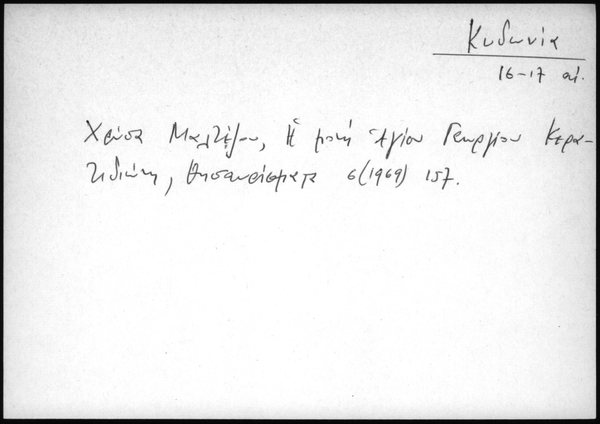 Κυδωνία
16-17 αἰ.
Χρύσα Μαλτέζου, Ἡ μονή Ἁγίου Γεωργίου Κερα-
τιδιώτη, Θησαυρίσματα 6(1969) 157.